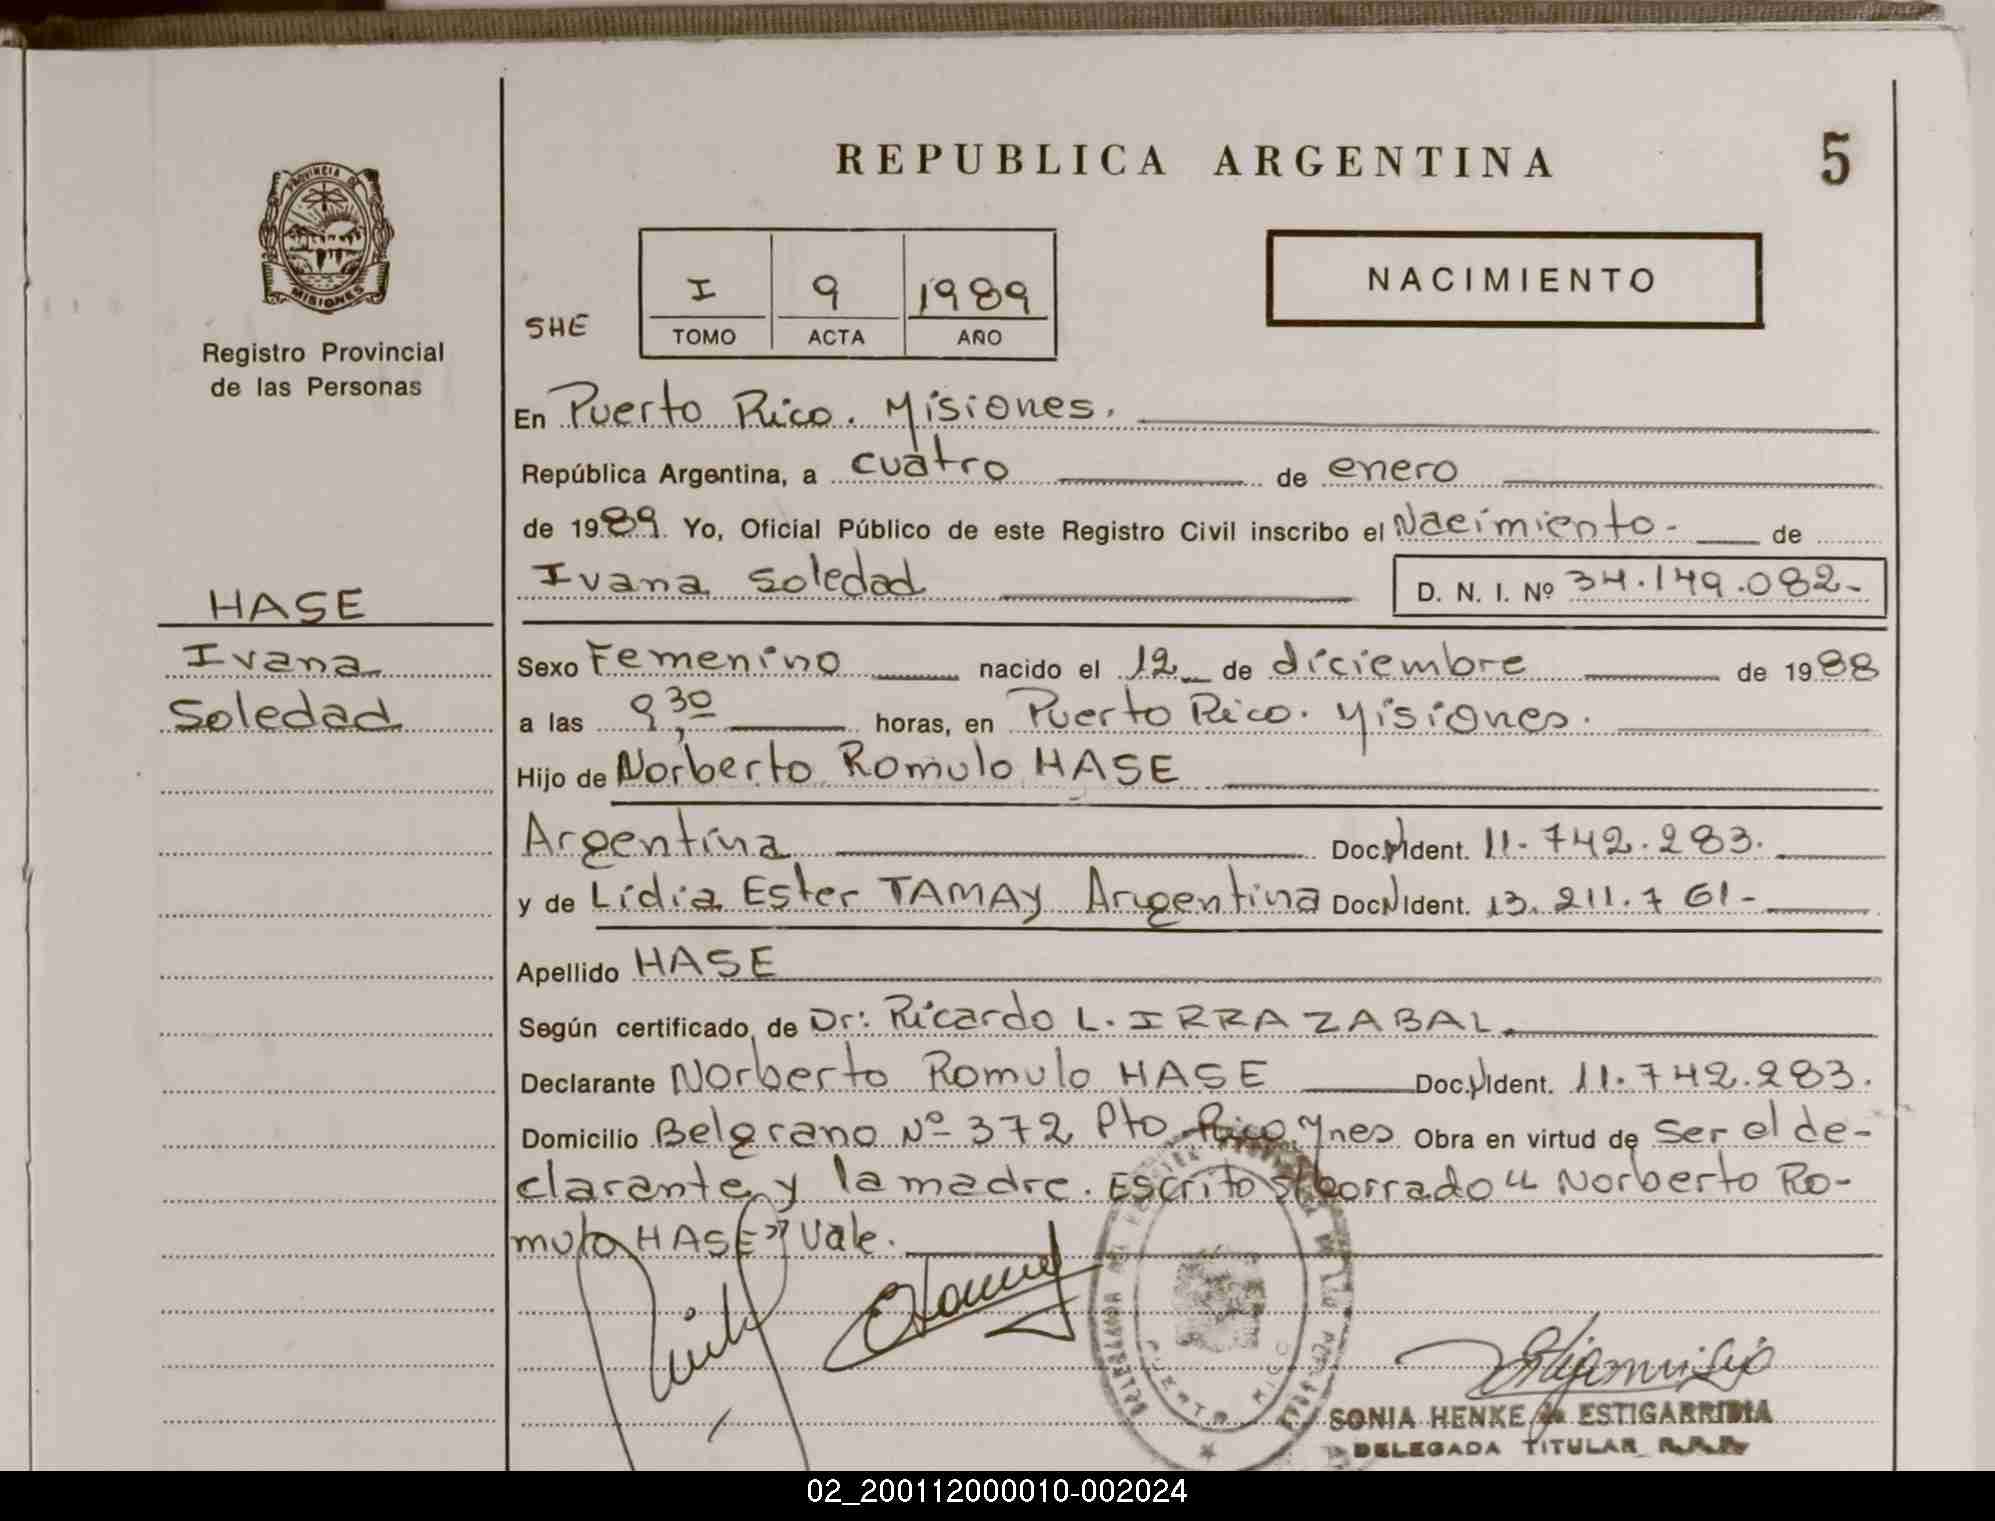 REPUBLICA ARGENTINA
5
PROVINCIA DE
MISIONES
Registro Provincial
de las Personas
SHE
I 9 1989
TOMO ACTA AÑO
NACIMIENTO
En Puerto Rico. Misiones.
República Argentina, a cuatro de enero
de 1989. Yo, Oficial Público de este Registro Civil inscribo el Nacimiento - de
Ivana Soledad D. N. I. Nº 34.149.082-
HASE
Ivana
Soledad
Sexo Femenino nacido el 12 de diciembre de 1988
a las 9,30 horas, en Puerto Rico. Misiones.
Hijo de Norberto Romulo HASE
Argentina Doc.N Ident. 11.742.283.
y de Lidia Ester TAMAY Argentina Doc N Ident. 13.211.761-
Apellido HASE
Según certificado de Dr: Ricardo L. IRRAZABAL.
Declarante Norberto Romulo HASE Doc.N Ident. 11.742.283.
Domicilio Belgrano Nº 372 Pto Rico, Mnes Obra en virtud de ser el de-
clarante y la madre. Escrito s/borrado "Norberto Ro-
mulo HASE" Vale.
PUERTO RICO
SONIA HENKE de ESTIGARRIBIA
DELEGADA TITULAR R.P.P.
02_200112000010-002024